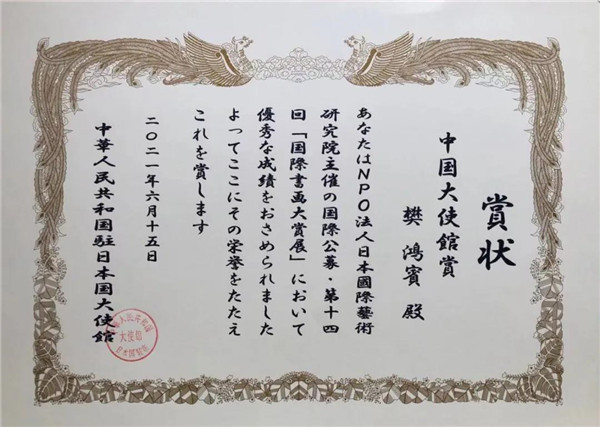 賞状
中国大使館賞
樊鴻賓殿
あなたはNPO法人日本國際藝術
研究院主催の国際公募・第十四
回「国際書画大賞展」において
優秀な成績をおさめられました
よってここにその栄誉をたたえ
これを賞します
二〇二一年六月十五日
中華人民共和国駐日本国大使館
大使館